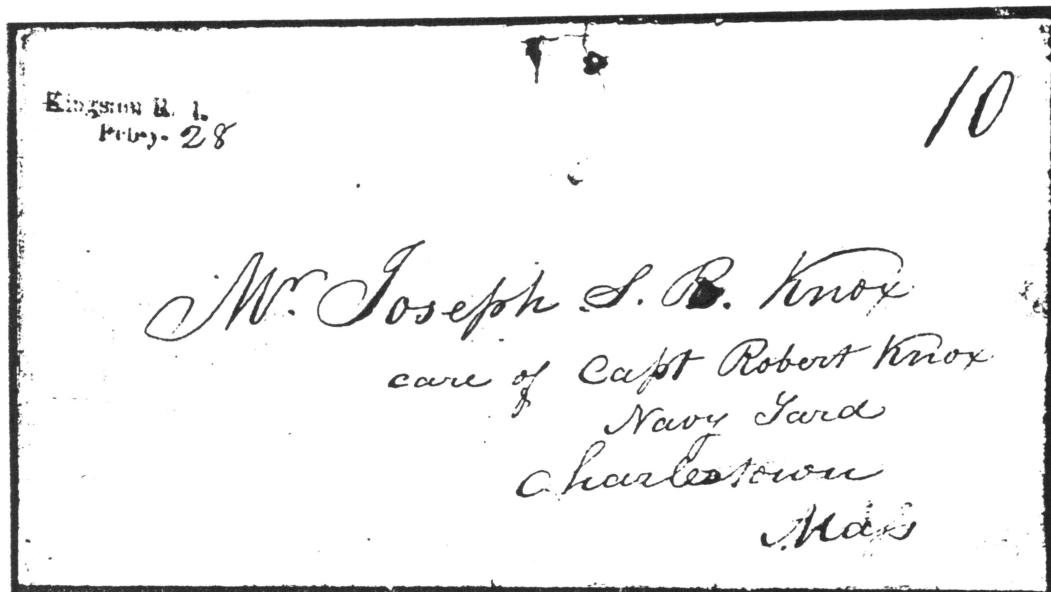 Kingston R. I.
Feby. 28
10
Mr. Joseph S. R. Knox
care of Capt Robert Knox
Navy Yard
Charlestown
Mass